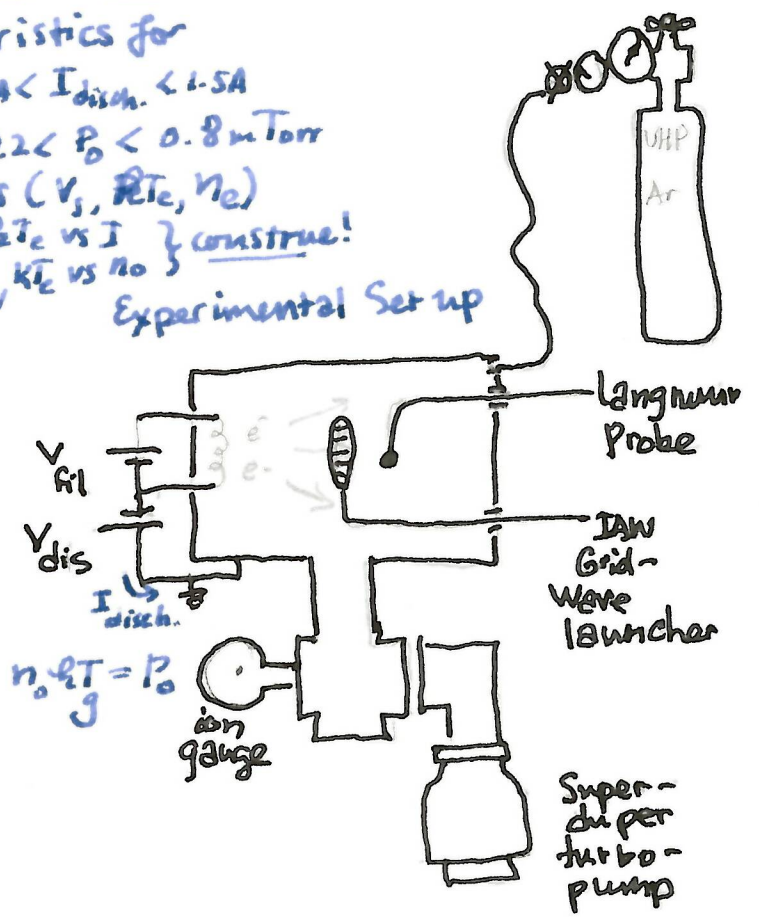 ristics for
A < I disch. < 1.5A
22 < P₀ < 0.8 mTorr
s (Vₛ, kTₑ, nₑ)
kTₑ vs I } construe!
kTₑ vs n₀
Experimental Set up
UHP
Ar
Langmuir
Probe
e⁻
e⁻
V fil
V dis
I disch.
IAW
Grid-
Wave
launcher
n₀kT_g = P₀
ion
gauge
Super-
duper
turbo-
pump